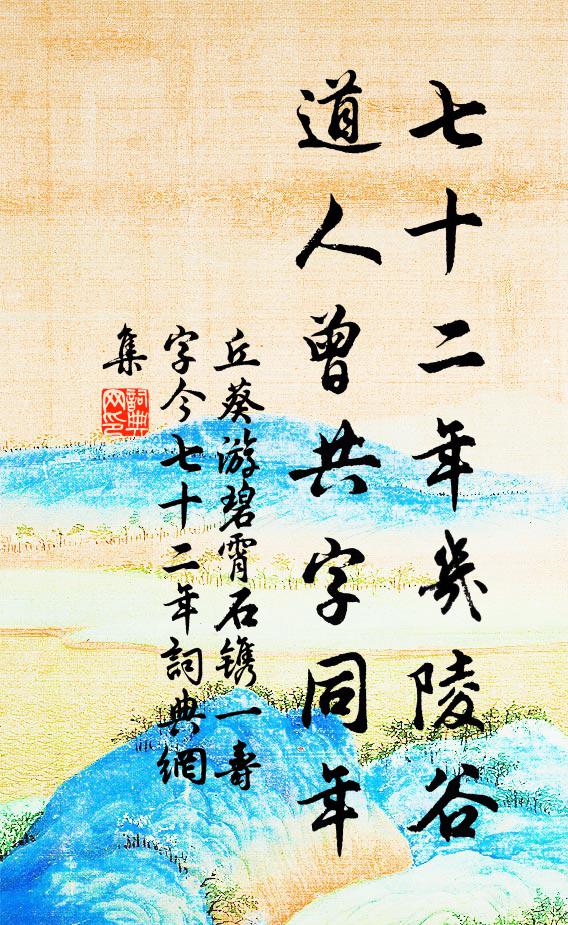 七十二年幾陵谷
道人曾共字同年
丘葵游碧霄石镌一壽
字今七十二年詞典網
集
詞典
网印